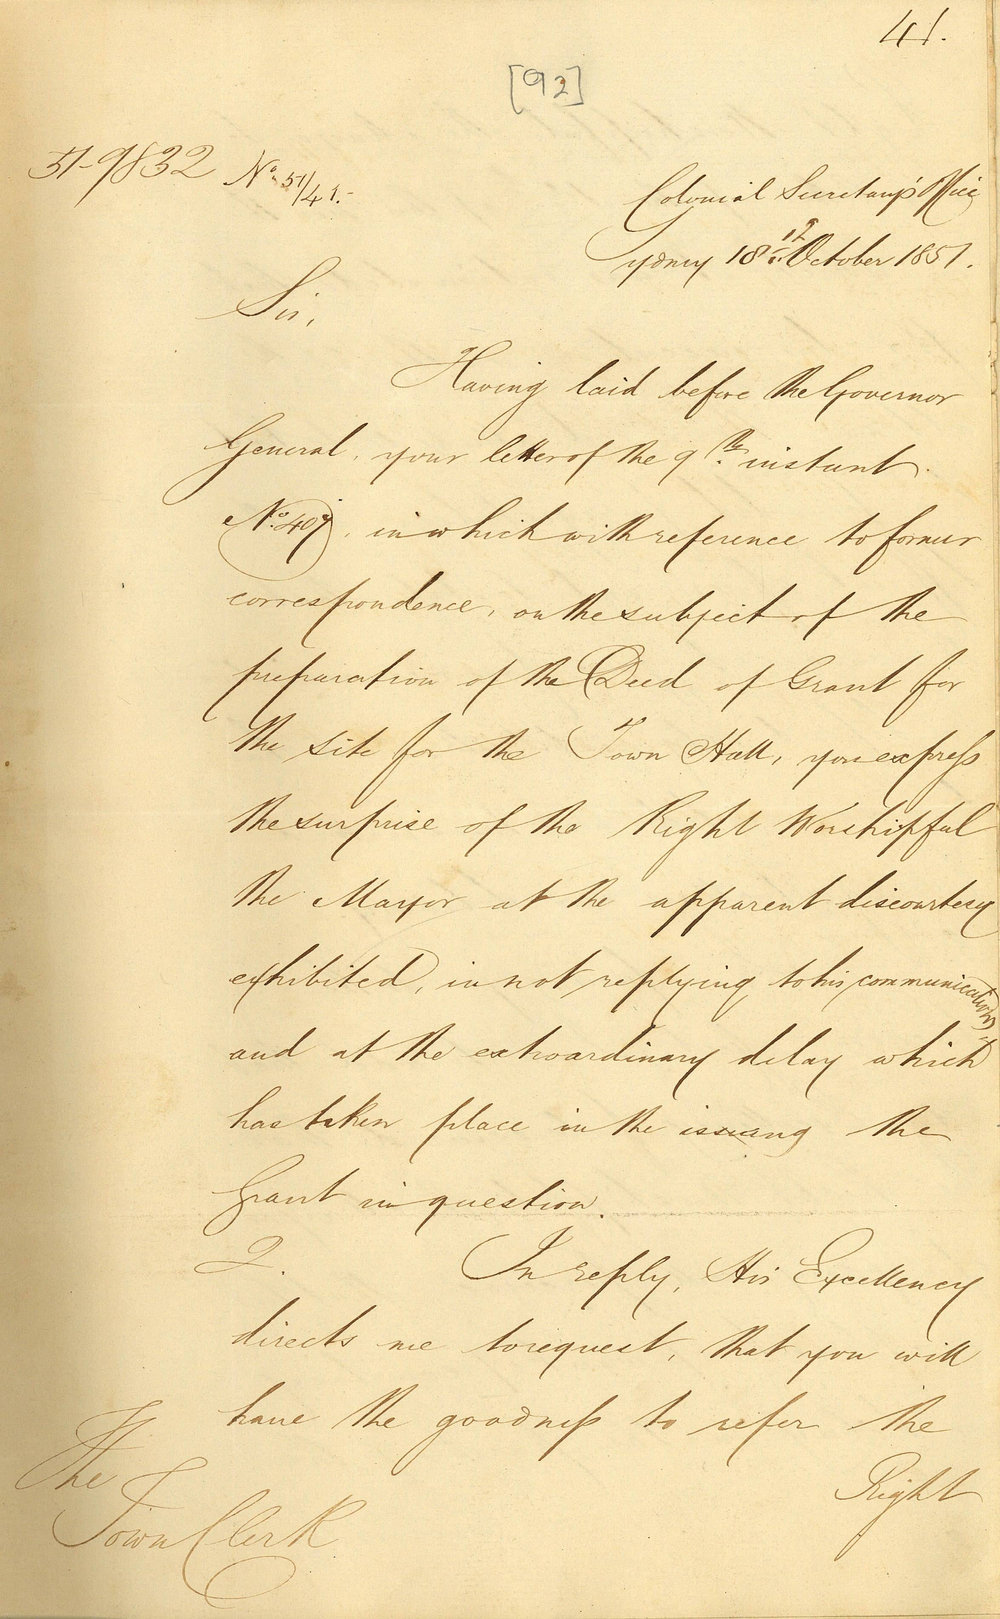 41.
[92]
51-9832 No. 51/41.
Colonial Secretary's Office
Sydney 18th October 1851.
Sir,
Having laid before the Governor
General, your letter of the 9th instant
No. 407, in which with reference to former
correspondence, on the subject of the
preparation of the Deed of Grant for
the site for the Town Hall, you express
the surprise of the Right Worshipful
the Mayor at the apparent discourtesy
exhibited, in not replying to his communications,
and at the extraordinary delay which
has taken place in the issuing the
Grant in question.
2. In reply, His Excellency
directs me to request, that you will
have the goodness to refer the
Right
The
Town Clerk